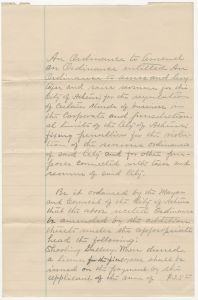 An Ordinance to Amend
an Ordinance entitled An
Ordinance to assess and levy
taxes and raise revenue for the
City of Athens for the regulation
of certain kinds of business in
the Corporate and jurisdictional
limits of the City of Athens,
fixing penalties for the violation
of the revenue ordinances
of said City and for other purposes
connected with taxes and
revenue of said City.
Be it ordained by the Mayor
and Council of the City of Athens
that the above recited Ordinance
be amended by the addition
thereto under the appropriate
head the following:
Shooting Gallery. When desired,
a license for the fine year shall be
issued on the payment by the
applicant of the sum of $25.00